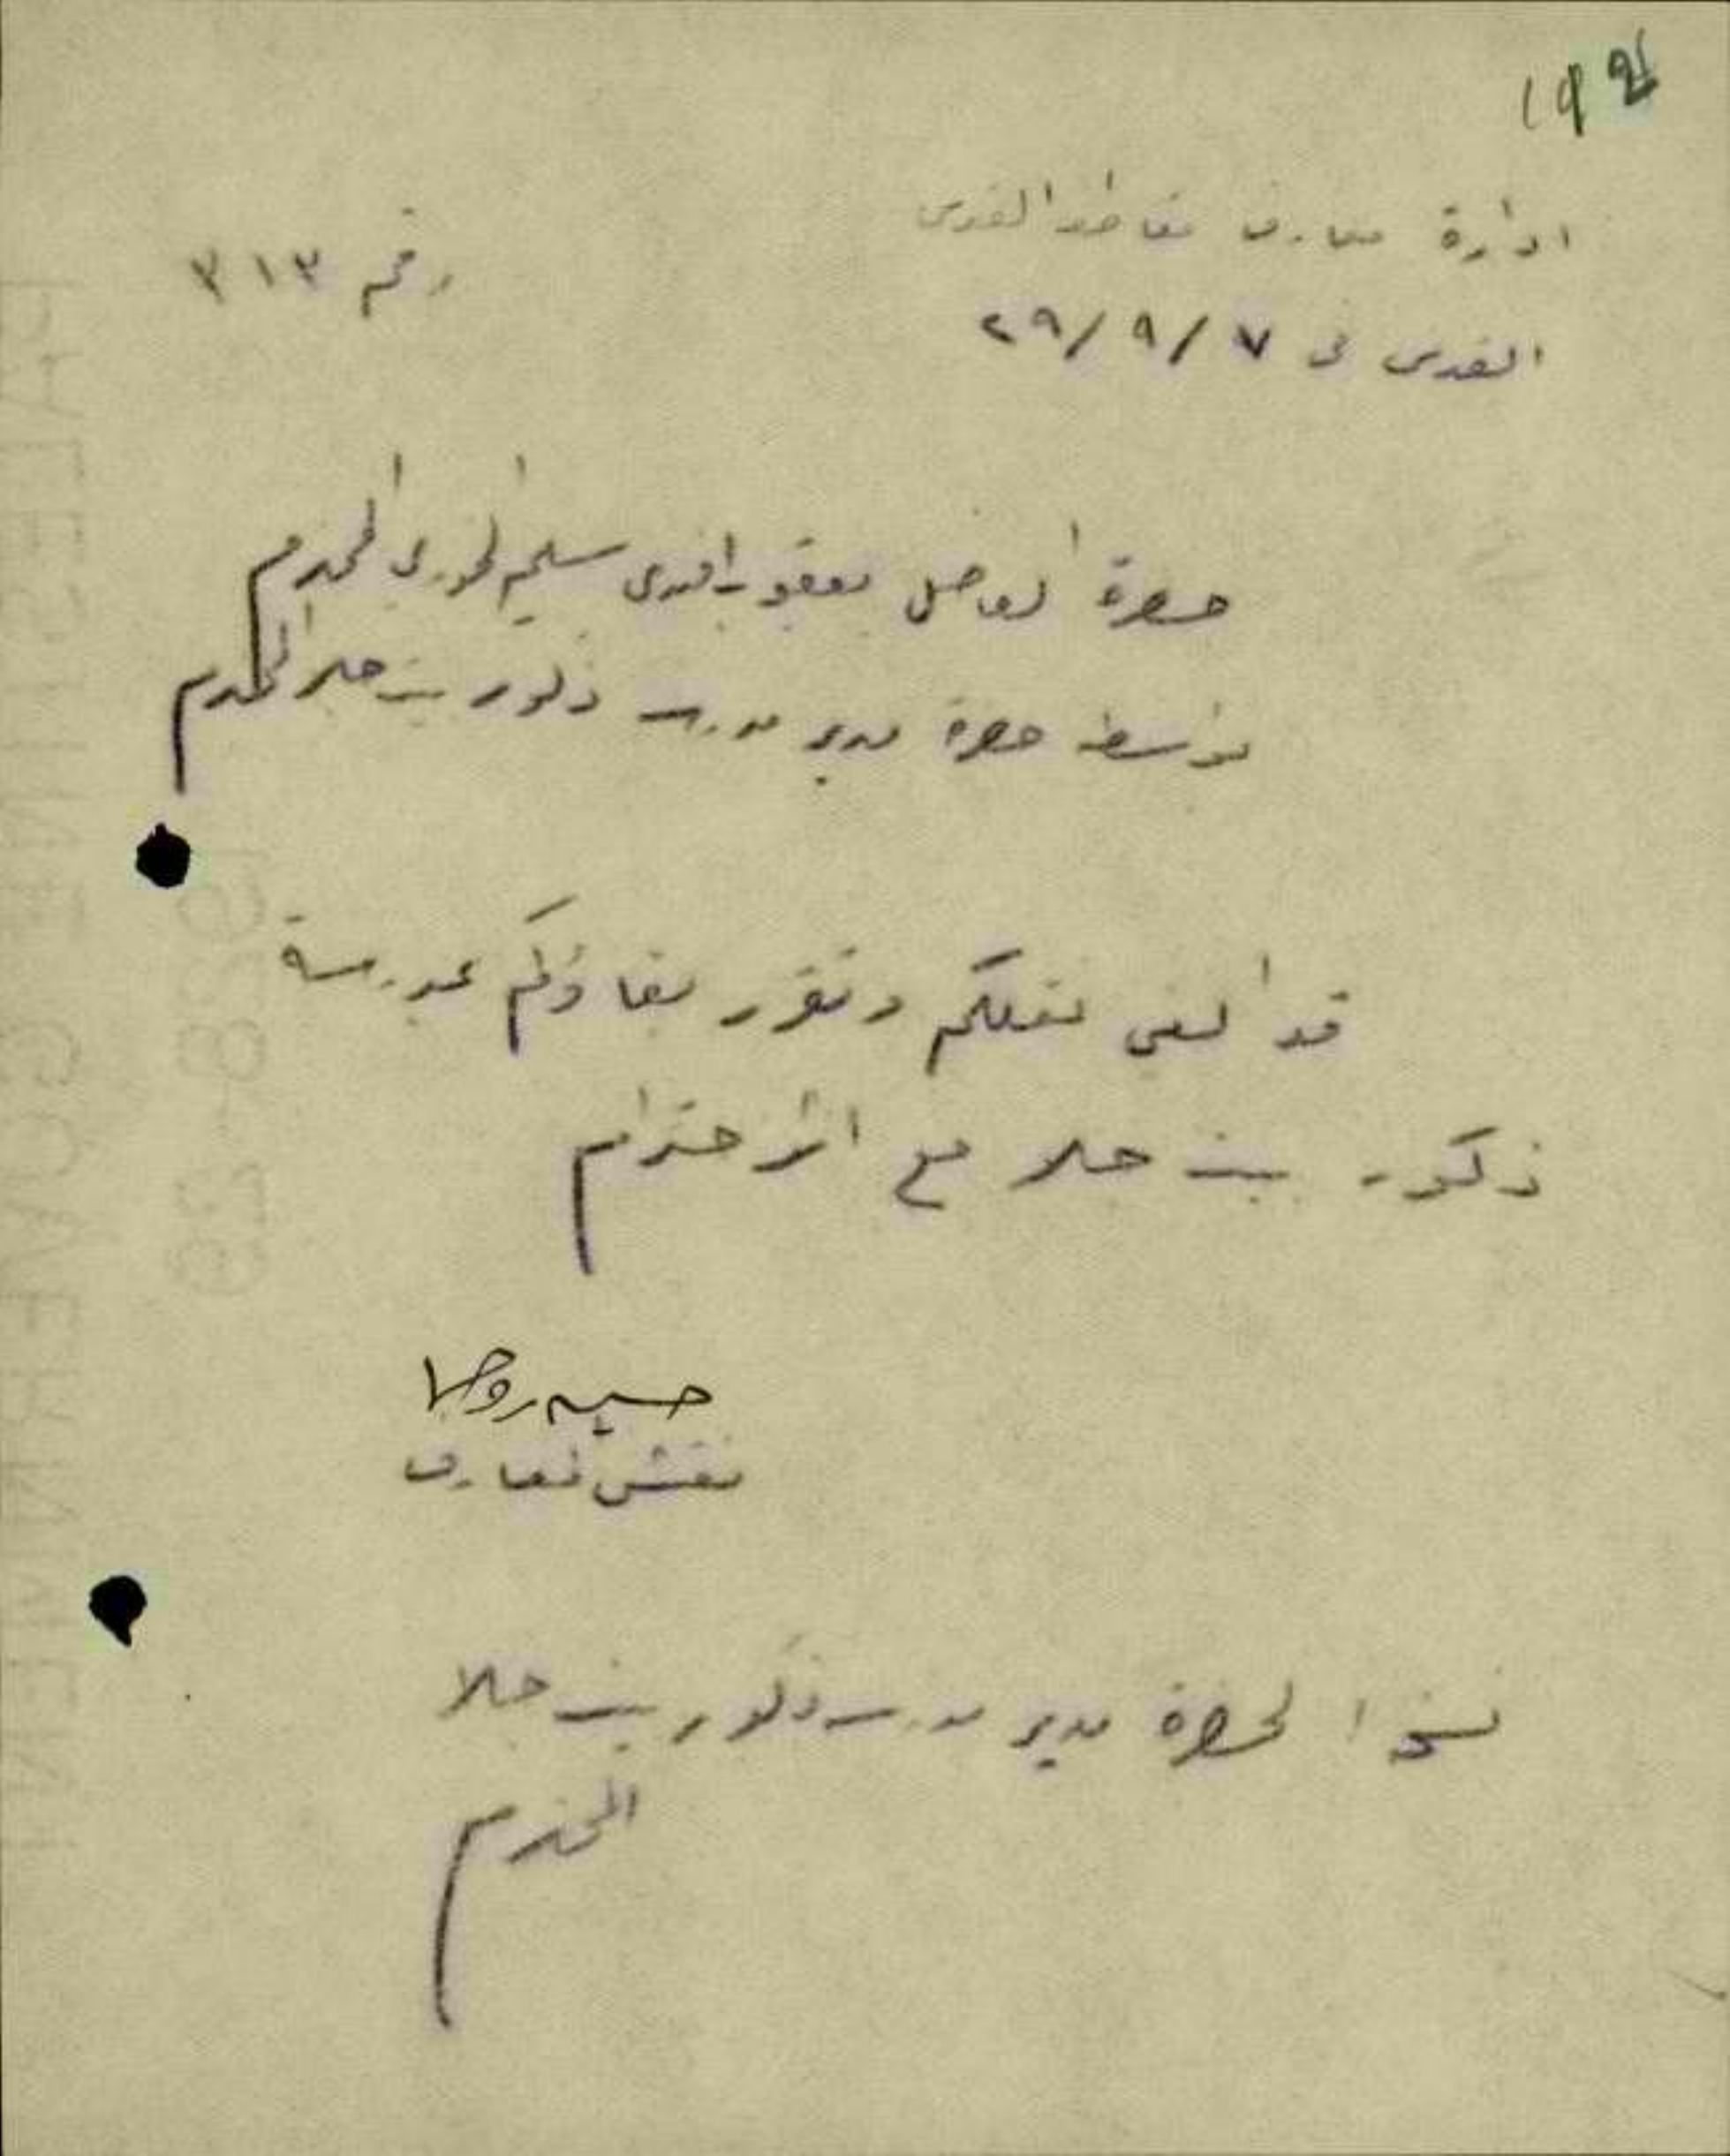 ادارة معارف مقاطعة القدس
رقم ٣١٣
القدس في ٧ / ٩ / ٢٩
حضرة الفاضل يعقوب افندي سليم الخوري المحترم
بواسطة حضرة مدير مدرسة ذكور بيت جالا المحترم
قد الغي نقلكم وتقرر بقاؤكم بمدرسة
ذكور بيت جالا مع الاحترام
حسين روحي
مفتش معارف
نسخة لحضرة مدير مدرسة ذكور بيت جالا
المحترم